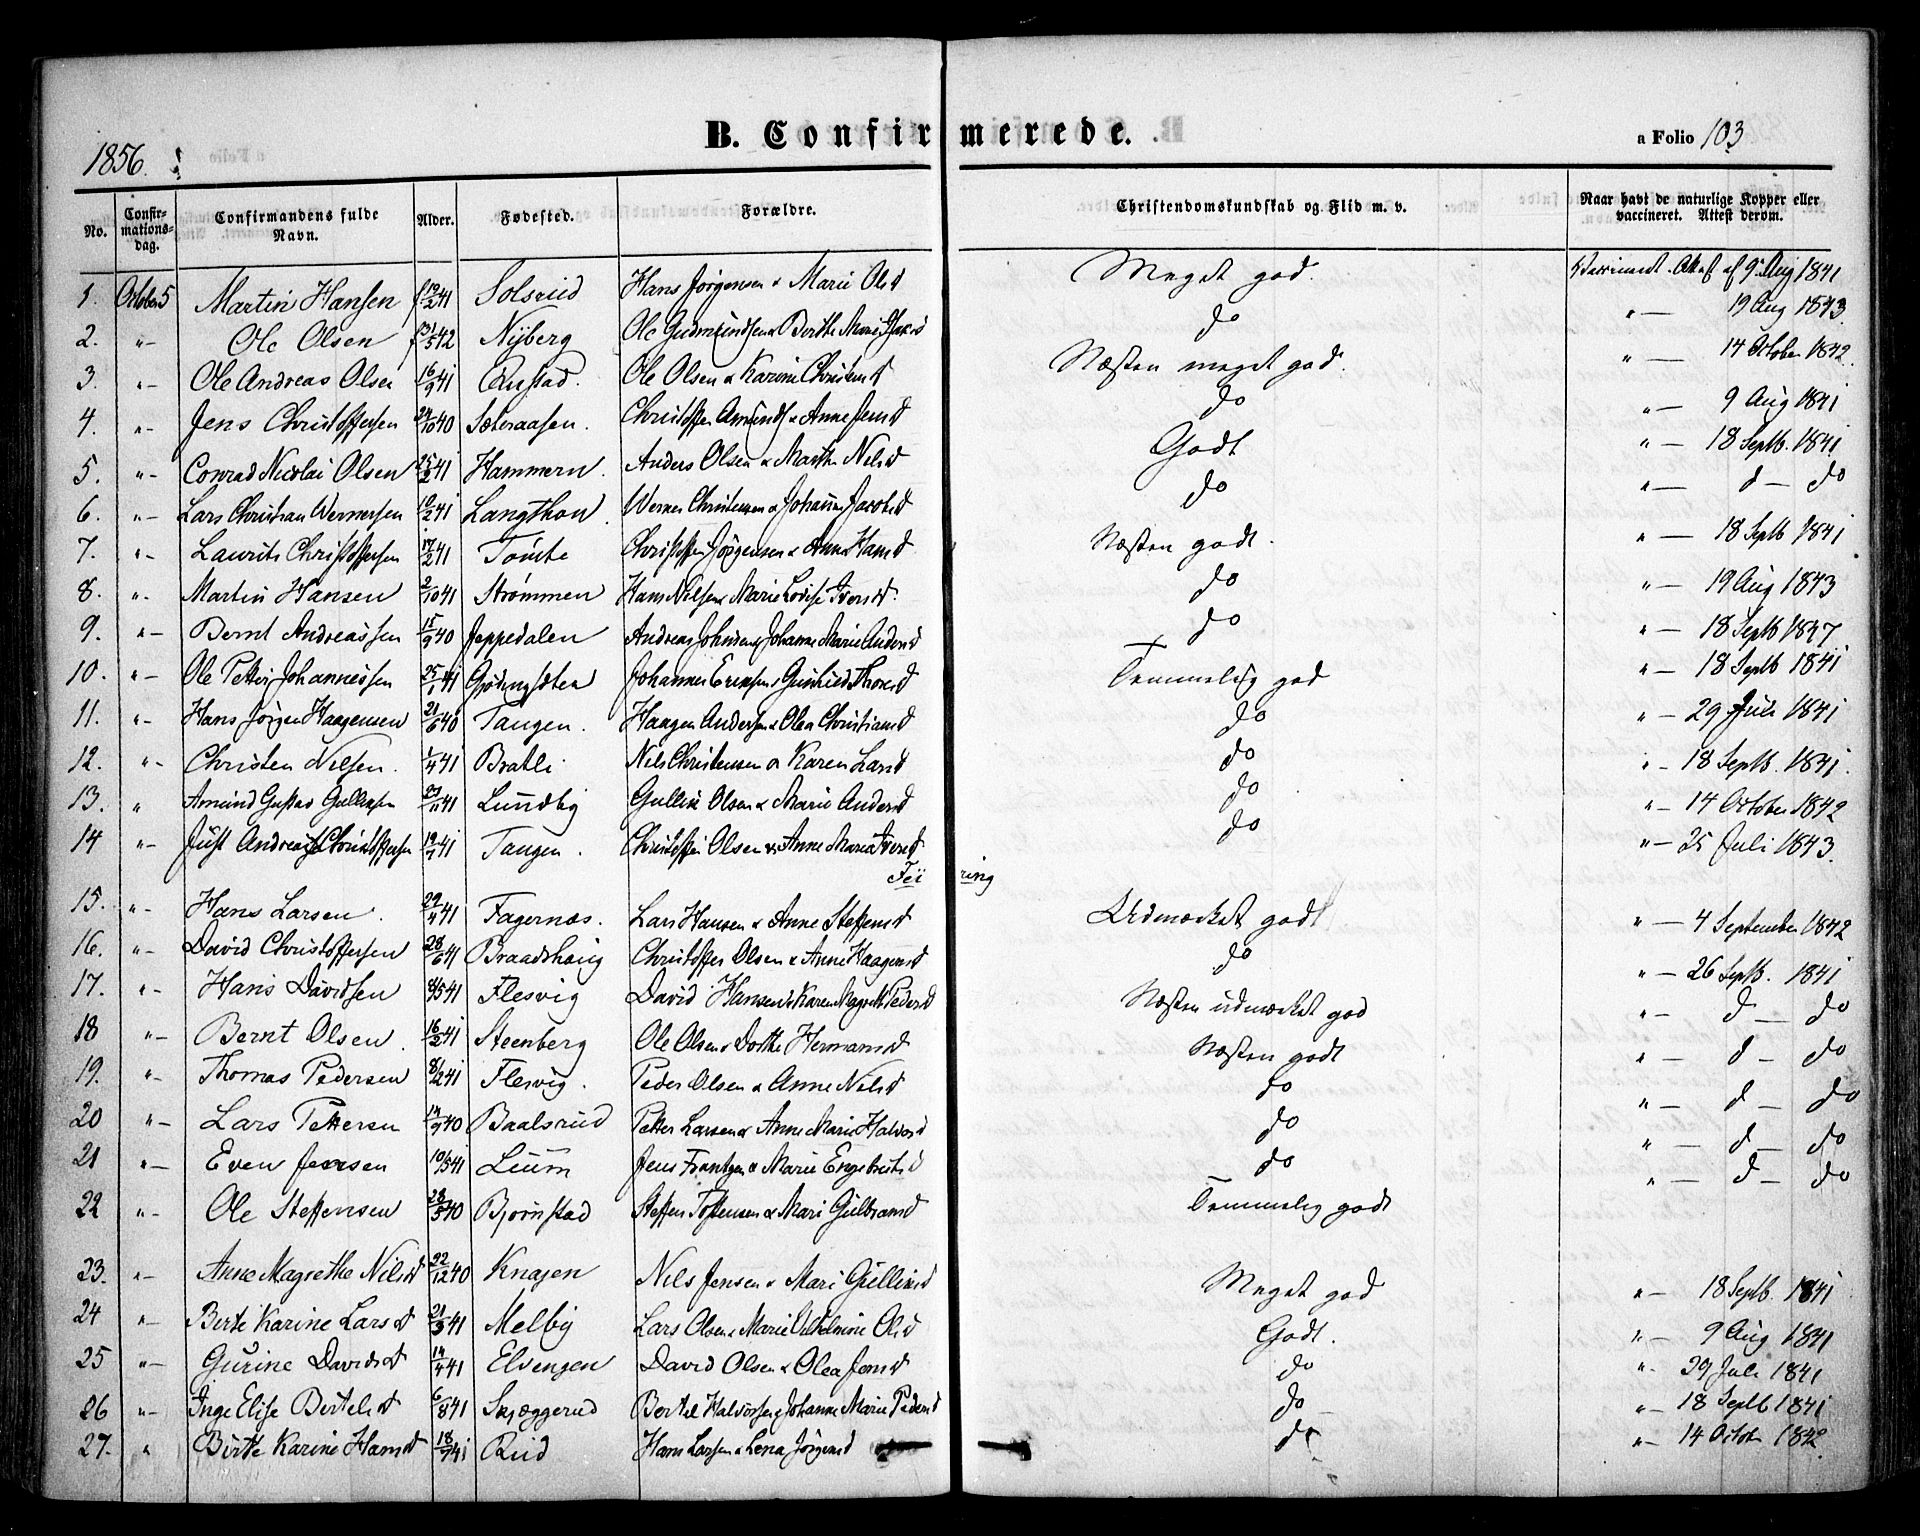 B. Confirmerede.
1856.
a Folio 103
No.
Confirmationsdag.
Confirmandens fulde Navn.
Alder.
Fødested.
Forældre.
Christendomskundskab og Flid m. v.
Naar havt de naturlige Kopper eller vaccineret. Attest derom.
1. October 5 Martin Hansen f 19/2 41 Solsrud Hans Jørgensen & Marie Olsd Meget god. Vaccineret. Attest af 9 Aug 1841
2. " - Ole Olsen 5 42 Nyberg Ole Gudmundsen & Berthe Marie do " — 19 Aug 1843.
3. " - Ole Andreas Olsen 16/9 41 Ole Olsen & Karine Christensd Næsten meget god. " — 14 October 1842.
4. " - Jens Christoffersen 24/10 40 Sæteraasen. Christoffer Amunds & Anne Jensd do " — 9 Aug 1841
5. " - Conrad Nicolai Olsen 25/2 41 Hammern. Anders Olsen & Marthe Nilsd Godt " — 18 Septb. 1841
6. " - Lars Christian Wernersen 10/2 41 Langthon. Werner Christensen & Johanne Jacobsd do " — d — do
7. " - Laurits Christoffersen 17/2 41 Tømte Christoffer Jørgensen & Anne Hansd Næsten godt. " — 18 Septb 1841
8. " - Martin Hansen 2/10 41 Strømmen Hans Nilsen & Marie Lovise Iversd. do " — 19 Aug 1843
9. " - Bernt Andreassen 15/9 40 Jeppedalen Andreas Johnsen & Johanne Marie Andersd do " — 18 Septb 1847
10. " - Ole Petter Johannessen 25/1 41 Johannes Ericksen & Gunhild Thoresd Temmelig god " — 18 Septb 1841
11. " - Hans Jørgen Haagensen 21/6 40 Tangen. Haagen Andersen & Olea Christiansd do " — 29 Juli 1841
12. " - Christen Nilsen. 1/4 41 Bratli Nils Christensen & Karen Larsd do " — 18 Septb. 1841.
13. " Amund Gustav Gullixsen 11 41 Lundby Gullix Olsen & Marie Andersd do " — 14 October 1842
14 " - Just Andreas Christoffersen 19/7 41 Tangen. Christoffer Olsen & Anne Maria Iversd do " — 25 Juli 1843.
Feiring
15. " - Hans Larsen. 22/4 41 Fagernæs. Lars Hansen & Anne Steffensd Udmærket godt " — 4 September 1842
16. " - David Christoffersen 28/6 41 Braadhoug Christoffer Olsen & Anne Haagensd do " — 26 Septb. 1841
17. " - Hans Davidsen 8/5 41 Flesvig David Hansen & Karen Magrethe Pedersd Næsten udmærket god " — d — do
18 " - Bernt Olsen. 16/2 41 Steenberg Ole Olsen & Dorthe Hermansd Næsten godt " — d — do
19. " - Thomas Pedersen 8/2 41 Flesvig. Peder Olsen & Anne Nilsd do " — d — do
20 " - Lars Pettersen 14/9 40 Baalsrud Petter Larsen & Anne Marie Halvorsd do " — d — do
21 " - Even Jensen 10/5 41 Lium Jens Frantzen & Marie Engebretsd do " — d — do
22 " - Ole Steffensen 28/5 40 Bjørnstad Steffen Toftensen & Mari Gulbransd Temmelig godt
23. " - Anne Magrethe Nilsd 22/12 40 Knajen Nils Jensen & Mari Gullixsd Meget god " — 18 Septb. 1841
24 " - Berte Karine Larsd 21/3 41 Melby Lars Olsen & Marie Vilhelmine Olsd Godt. " — 9 Aug 1841
25 " - Gurine Davidsd 14/4 41 Elvengen David Olsen & Olea Jensd do " - 29 Juli 1841
26 " - Inge Elise Bertelsd 6/8 41 Skjæggerud Bertel Halvorsen & Johanne Marie Pedersd do " — 18 Septb 1841
27. " Birte Karine Hansd 18/7 41 Rud Hans Larsen & Lena Jørgensd do " — 14 Octobr 1842.